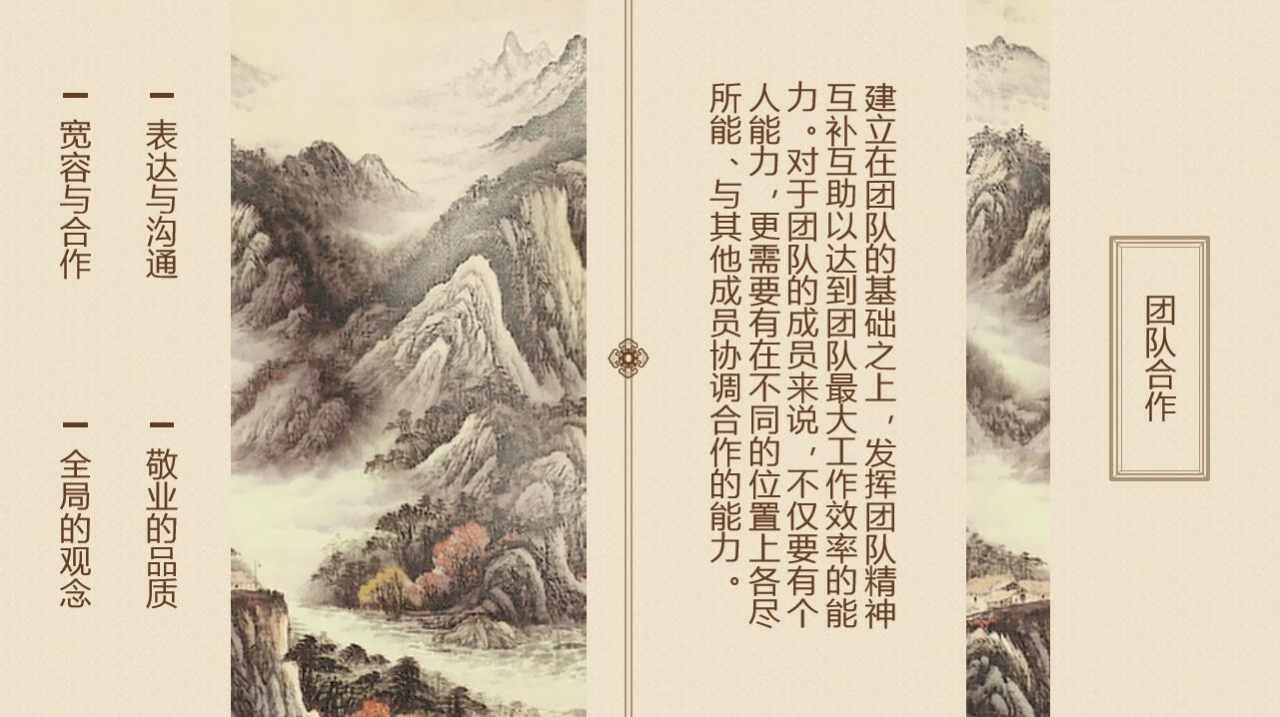 团队合作
建立在团队的基础之上，发挥团队精神
互补互助以达到团队最大工作效率的能
力。对于团队的成员来说，不仅要有个
人能力，更需要有在不同的位置上各尽
所能、与其他成员协调合作的能力。
表达与沟通
敬业的品质
宽容与合作
全局的观念